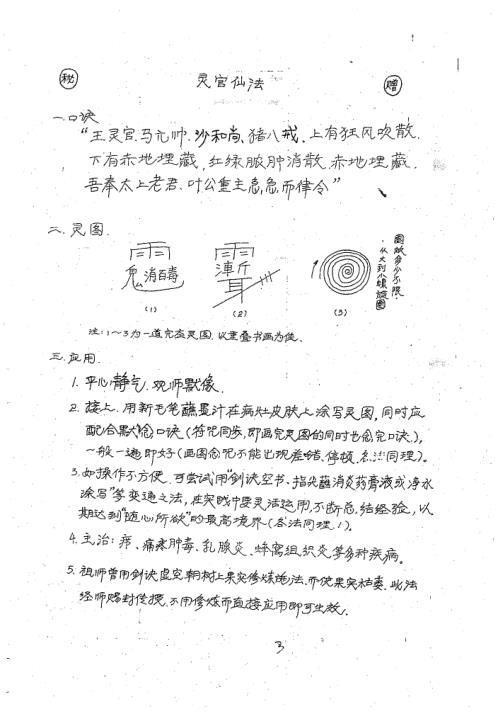 秘 灵官仙法 赠
一.口诀
“王灵官.马元帅.沙和尚.猪八戒.上有狂风吹散.
下有赤地埋藏.红绿脓肿消散.赤地埋藏.
吾奉太上老君.叶公重主急急而律令”
二.灵图.
消百毒
(1) (2) (3)
圈数多少不限.
从大到小螺旋圈
注:1~3为一道完整灵图.以重叠书画为佳.
三.应用.
1.平心静气.观师默像.
2.接上.用新毛笔蘸墨汁在病灶皮肤上涂写灵图,同时应
配合默念口诀(符咒同步,即画完灵图的同时也念完口诀),
一般一遍即好(画图念咒不能出现差错.停顿.各法同理)。
3.如操作不方便.可尝试用“剑诀空书.指尖蘸消炎药膏液或净水
涂写”等变通之法,在实践中要灵活运用,不断总结经验,以
期达到“随心所欲”的最高境界(各法同理.!).
4.主治:疖、痛来肿毒、乳腺炎、蜂窝组织炎等多种疾病。
5.祖师曾用剑诀虚空朝树上果实修炼此法.而使果实枯萎.此法
经师赐封传授.不用修炼而直接应用即可生效.
3